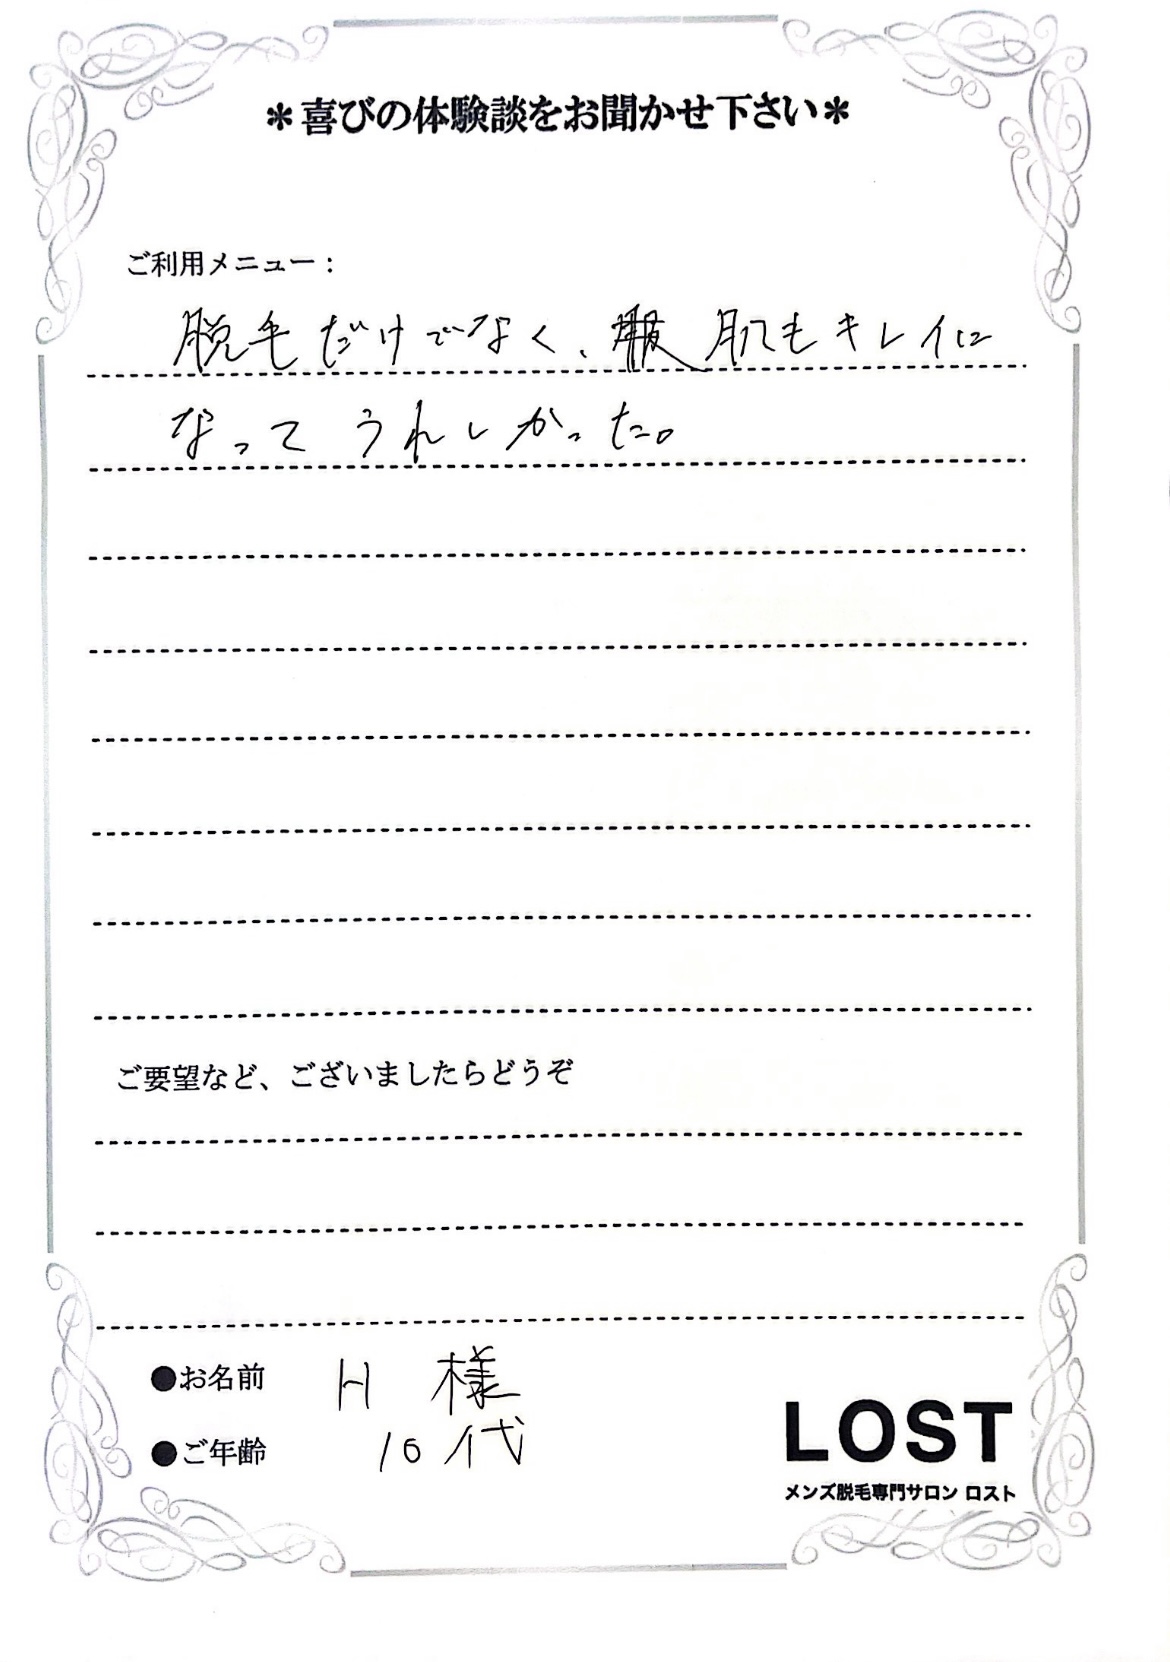 ＊喜びの体験談をお聞かせ下さい＊
ご利用メニュー：
脱毛だけでなく、肌もキレイに
なってうれしかった。
ご要望など、ございましたらどうぞ
●お名前 H 様
●ご年齢 10代
LOST
メンズ脱毛専門サロン ロスト